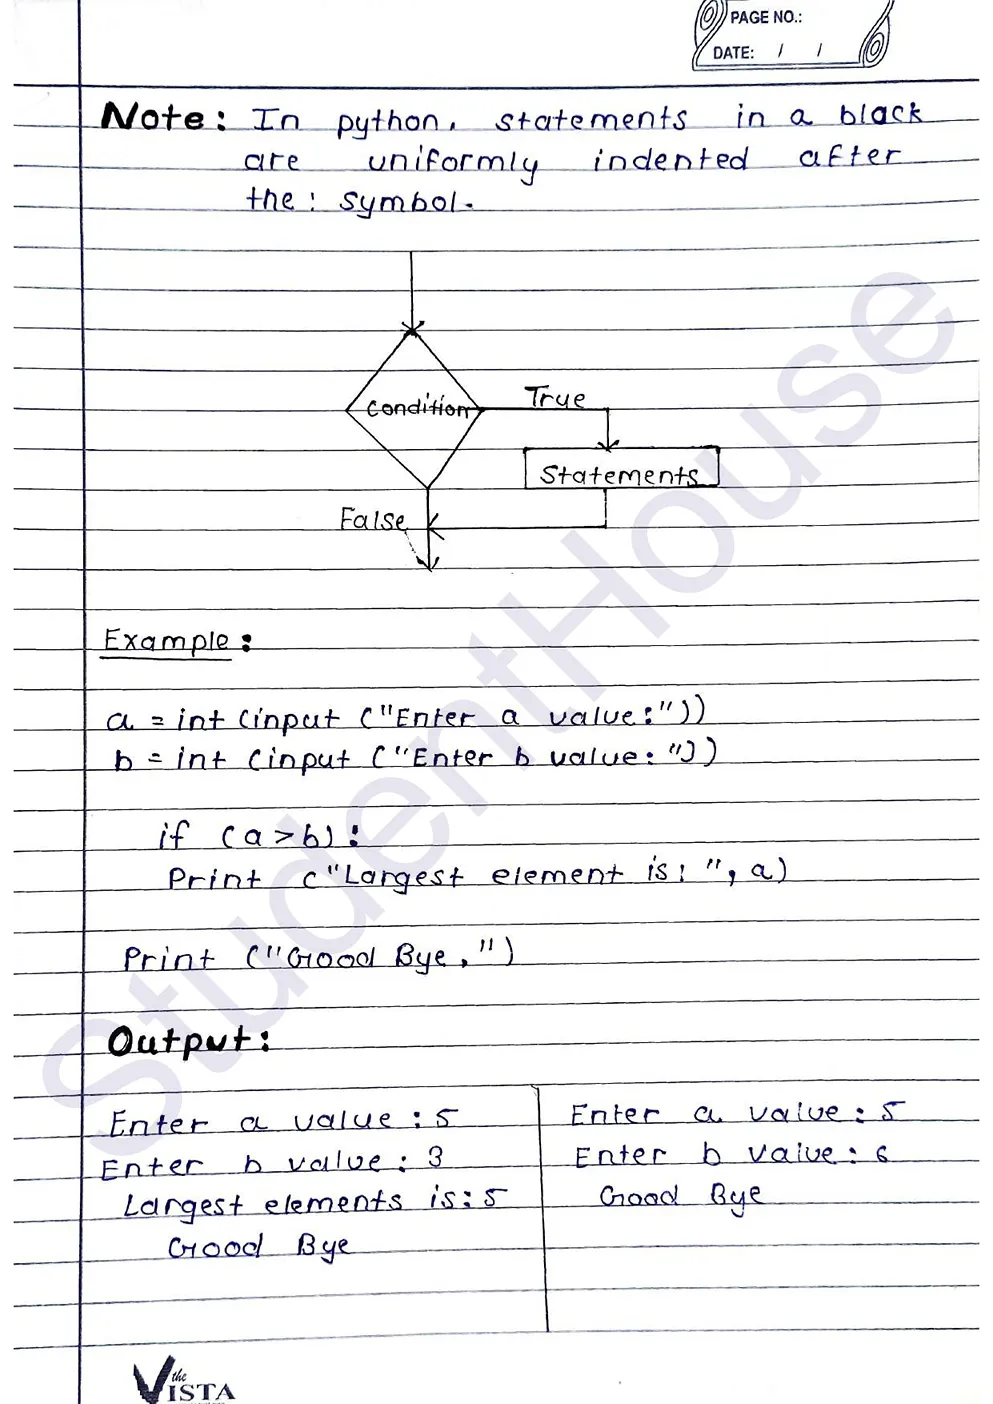 PAGE NO.:
DATE: / /
Note: In python, statements in a black
are uniformly indented after
the : symbol.
Condition
True
Statements
False
Example:
a = int (input ("Enter a value:"))
b = int (input ("Enter b value: "))
if (a > b) :
Print ("Largest element is: ", a)
Print ("Good Bye, ")
Output:
Enter a value : 5
Enter b value : 3
Largest elements is: 5
Good Bye
Enter a value : 5
Enter b value : 6
Good Bye
StudentHouse
the
VISTA